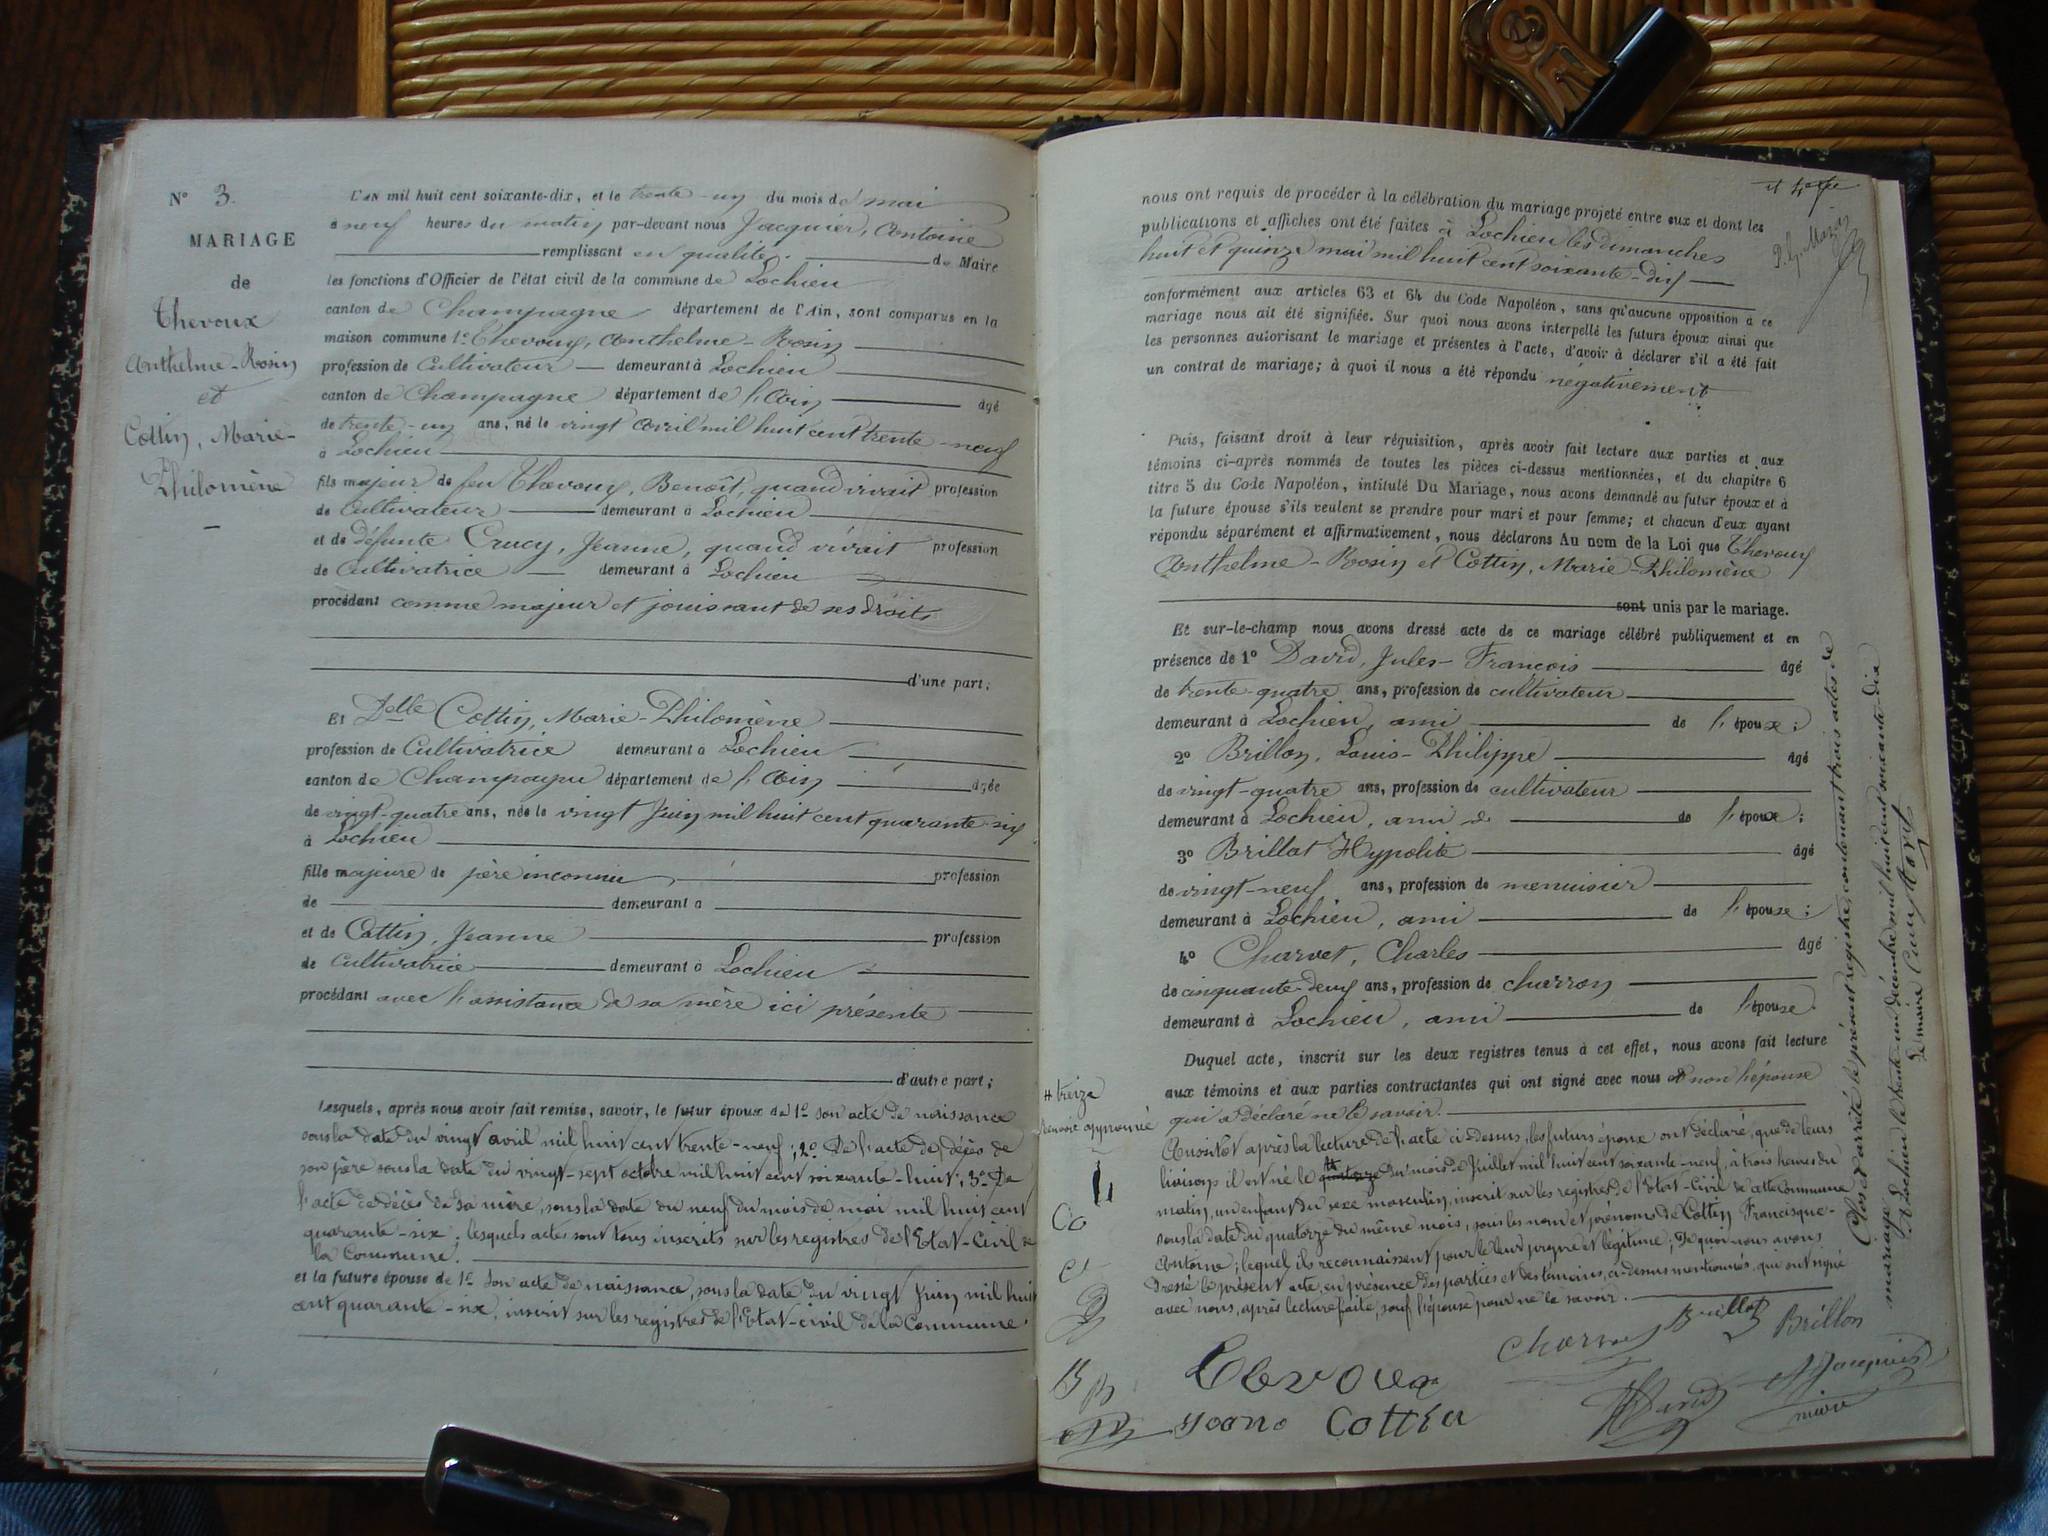 N° 3.
MARIAGE
de
Thevoux
Anthelme-Rosin
et
Cottin, Marie-
Philomène
L'AN mil huit cent soixante-dix, et le trente-un du mois de mai
à neuf heures du matin par-devant nous Jacquier, Antoine
remplissant en qualité de Maire
les fonctions d'Officier de l'état civil de la commune de Lochieu
canton de Champagne département de l'Ain, sont comparus en la
maison commune 1° Thevoux, Anthelme-Rosin
profession de Cultivateur demeurant à Lochieu
canton de Champagne département de l'Ain âgé
de trente-un ans, né le vingt avril mil huit cent trente-neuf
à Lochieu
fils majeur de feu Thevoux, Benoît, quand vivait profession
de Cultivateur demeurant à Lochieu
et de défunte Crucy, Jeanne, quand vivait profession
de Cultivatrice demeurant à Lochieu
procédant comme majeur et jouissant de ses droits
d'une part;
Et Delle Cottin, Marie-Philomène
profession de Cultivatrice demeurant à Lochieu
canton de Champagne département de l'Ain âgée
de vingt-quatre ans, née le vingt Juin mil huit cent quarante-six
à Lochieu
fille majeure de père inconnu profession
de demeurant à
et de Cottin, Jeanne profession
de Cultivatrice demeurant à Lochieu
procédant avec l'assistance de sa mère ici présente
d'autre part;
Lesquels, après nous avoir fait remise, savoir, le futur époux de 1° son acte de naissance
sous la date du vingt avril mil huit cent trente-neuf; 2° De l'acte de décès de
son père sous la date du vingt-sept octobre mil huit cent soixante-huit; 3° De
l'acte de décès de sa mère, sous la date du neuf du mois de mai mil huit cent
quarante-six; lesquels actes sont tous inscrits sur les registres de l'Etat-Civil de
la Commune.
et la future épouse de 1° Son acte de naissance, sous la date du vingt Juin mil huit
cent quarante-six, inscrit sur les registres de l'Etat-civil de la Commune.
nous ont requis de procéder à la célébration du mariage projeté entre eux et dont les
publications et affiches ont été faites à Lochieu les dimanches
huit et quinze mai mil huit cent soixante-dix
conformément aux articles 63 et 64 du Code Napoléon, sans qu'aucune opposition à ce
mariage nous ait été signifiée. Sur quoi nous avons interpellé les futurs époux ainsi que
les personnes autorisant le mariage et présentes à l'acte, d'avoir à déclarer s'il a été fait
un contrat de mariage; à quoi il nous a été répondu négativement
Puis, faisant droit à leur réquisition, après avoir fait lecture aux parties et aux
témoins ci-après nommés de toutes les pièces ci-dessus mentionnées, et du chapitre 6
titre 5 du Code Napoléon, intitulé Du Mariage, nous avons demandé au futur époux et à
la future épouse s'ils veulent se prendre pour mari et pour femme; et chacun d'eux ayant
répondu séparément et affirmativement, nous déclarons Au nom de la Loi que Thevoux
Anthelme-Rosin et Cottin, Marie-Philomène
sont unis par le mariage.
Et sur-le-champ nous avons dressé acte de ce mariage célébré publiquement et en
présence de 1° David, Jules-François âgé
de trente-quatre ans, profession de cultivateur
demeurant à Lochieu, ami de l'époux;
2° Brillon, Louis-Philippe âgé
de vingt-quatre ans, profession de cultivateur
demeurant à Lochieu, ami de de l'époux;
3° Brillat Hypolite âgé
de vingt-neuf ans, profession de menuisier
demeurant à Lochieu, ami de l'épouse;
4° Charvet, Charles âgé
de cinquante-deux ans, profession de charron
demeurant à Lochieu, ami de l'épouse.
Duquel acte, inscrit sur les deux registres tenus à cet effet, nous avons fait lecture
aux témoins et aux parties contractantes qui ont signé avec nous et non l'épouse
qui a déclaré ne le savoir.
Aussitôt après la lecture de l'acte ci-dessus, les futurs époux ont déclaré, que de leurs
liaisons il est né le quatorze du mois de Juillet mil huit cent soixante-neuf, à trois heures du
matin, un enfant du sexe masculin, inscrit sur les registres de l'Etat-Civil de cette Commune
sous la date du quatorze du même mois, sous les nom et prénoms de Cottin Francisque-
Antoine; lequel ils reconnaissent pour le leur propre et légitime; De quoi nous avons
dressé le présent acte, en présence des parties et des témoins, ci-dessus mentionnés, qui ont signé
avec nous, après lecture faite, sauf l'épouse pour ne le savoir.
# treize
renvoi approuvé
Charvet Brillat Brillon
Tevoux
David
Jacquier
maire
Cottin
Clos et arrêté le présent registre, contenant trois actes de
mariage à Lochieu le trente-un décembre mil huit cent soixante-dix